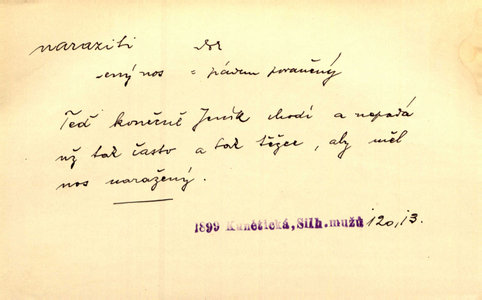 naraziti dok
-ený nos = pádem poraněný
Teď konečně Jeník chodí a nepadá
už tak často a tak těžce, aby měl
nos naražený.
1899 Kunětická, Silh. mužů 120, 13.